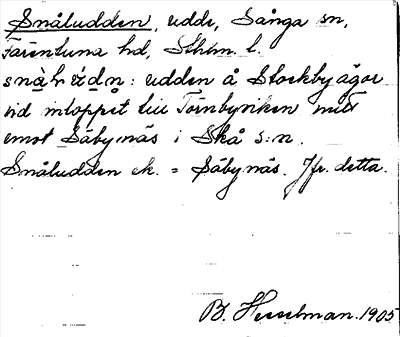 Snåludden, udde, Sånga sn,
Färentuna hd, Sthlm. l.
udden å Stockbyägor
vid inloppet till Törnbyviken mitt
emot Säbynäs i Skå s:n.
Snåludden ek. = Säbynäs. Jfr. detta.
B. Hesselman. 1905